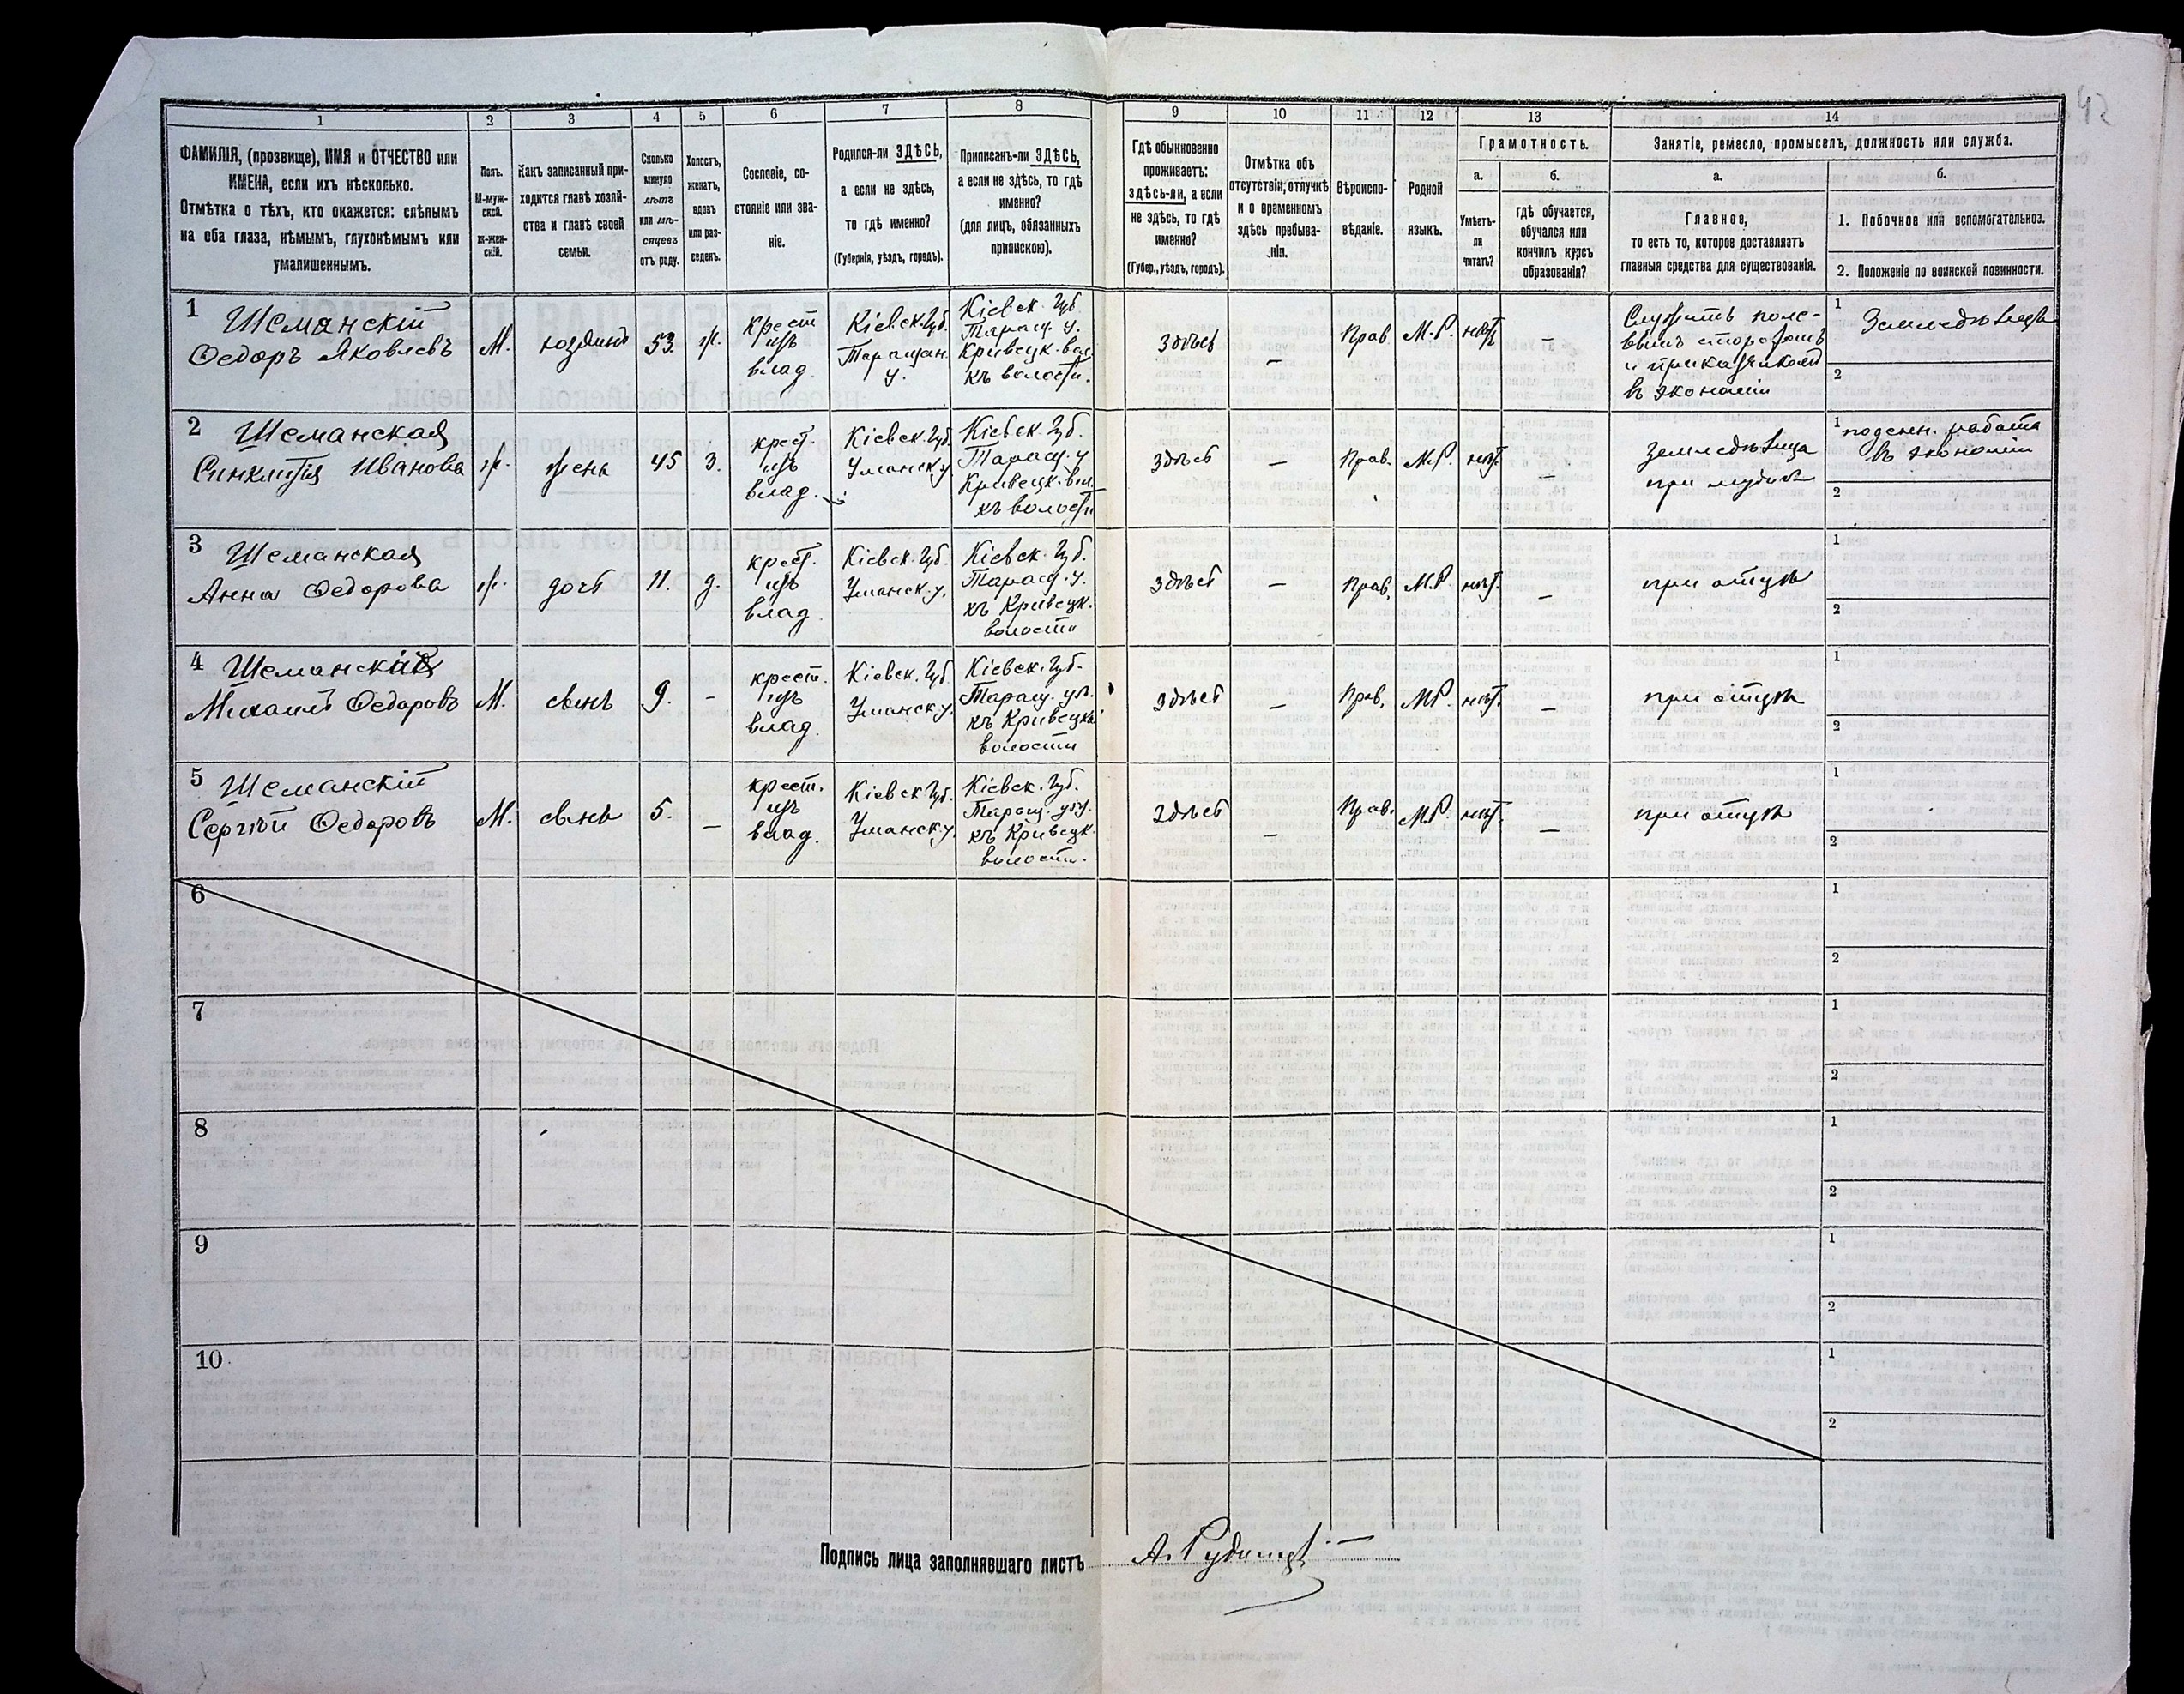 42
1 2 3 4 5 6 7 8 9 10 11 12 13 14
ФАМИЛІЯ, (прозвище), ИМЯ и ОТЧЕСТВО или
ИМЕНА, если ихъ нѣсколько.
Отмѣтка о тѣхъ, кто окажется: слѣпымъ
на оба глаза, нѣмымъ, глухонѣмымъ или
умалишеннымъ.
Полъ.
М-муж-
ской.
ж-жен-
скій.
Какъ записанный при-
ходится главѣ хозяй-
ства и главѣ своей
семьи.
Сколько
минуло
лѣтъ
или мѣ-
сяцевъ
отъ роду.
Холостъ,
женатъ,
вдовъ
или раз-
веденъ.
Сословіе, со-
стояніе или зва-
ніе.
Родился-ли ЗДѢСЬ,
а если не здѣсь,
то гдѣ именно?
(Губернія, уѣздъ, городъ).
Приписанъ-ли ЗДѢСЬ,
а если не здѣсь, то гдѣ
именно?
(для лицъ, обязанныхъ
припискою).
Гдѣ обыкновенно
проживаетъ:
ЗДѢСЬ-ли, а если
не здѣсь, то гдѣ
именно?
(Губер., уѣздъ, городъ).
Отмѣтка объ
отсутствіи, отлучкѣ
и о временномъ
здѣсь пребыва-
ніи.
Вѣроиспо-
вѣданіе.
Родной
языкъ.
Грамотность.
а.
Умѣетъ-
ли
читать?
б.
гдѣ обучается,
обучался или
кончилъ курсъ
образованія?
Занятіе, ремесло, промыселъ, должность или служба.
а.
Главное,
то есть то, которое доставляетъ
главныя средства для существованія.
б.
1. Побочное или вспомогательное.
2. Положеніе по воинской повинности.
1
Шеманскій
Ѳедоръ Яковлевъ
М.
хозяинъ
53.
ж.
крест
изъ
влад.
Кіевск. Губ.
Таращан.
у.
Кіевск. Губ
Таращ. у.
Кривецк. вол.
къ волости.
здѣсь
–
Прав.
М.Р.
нѣт
–
Служитъ поле-
вымъ сторожомъ
и приказчикомъ
въ экономіи
1
Земледѣлецъ
2
2
Шеманская
Синклитія Иванова
ж.
жена
45
З.
крест.
изъ
влад.
Кіевск. Губ.
Уманск. у
Кіевск. Губ.
Таращ. у
Кривецк. вол.
къ волости
здѣсь
–
Прав.
М.Р.
нѣт.
–
земледѣлица
при мужѣ
1
поденн. работа
въ экономіи
2
3
Шеманская
Анна Ѳедорова
ж.
дочь
11.
д.
крест.
изъ
влад.
Кіевск. Губ.
Уманск. у.
Кіевск. Губ.
Таращ. у.
къ Кривецк.
волости
здѣсь
–
Прав.
М.Р.
нѣт.
–
при отцѣ
1
2
4
Шеманскій
Михаилъ Ѳедоровъ
М.
сынъ
9.
–
крест.
изъ
влад.
Кіевск. Губ
Уманск. у.
Кіевск. Губ.
Таращ. уѣ.
къ Кривецк.
волости
здѣсь
–
Прав.
М.Р.
нѣт.
–
при отцѣ
1
2
5
Шеманскій
Сергѣй Ѳедоровъ
М.
сынъ
5.
–
крест.
изъ
влад.
Кіевск Губ.
Уманск. у.
Кіевск. Губ.
Таращ. уѣз.
къ Кривецк.
волости.
здѣсь
–
Прав.
М.Р.
нѣт.
–
при отцѣ
1
2
6
1
2
7
1
2
8
1
2
9
1
2
10
1
2
Подпись лица заполнявшаго листъ